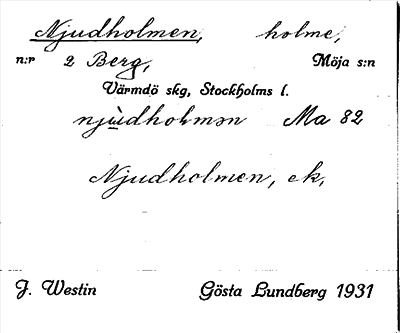 Njudholmen, holme,
n:r 2 Berg, Möja s:n
Värmdö skg, Stockholms l.
njùdholmən Ma 82
Njudholmen, ek,
J. Westin Gösta Lundberg 1931